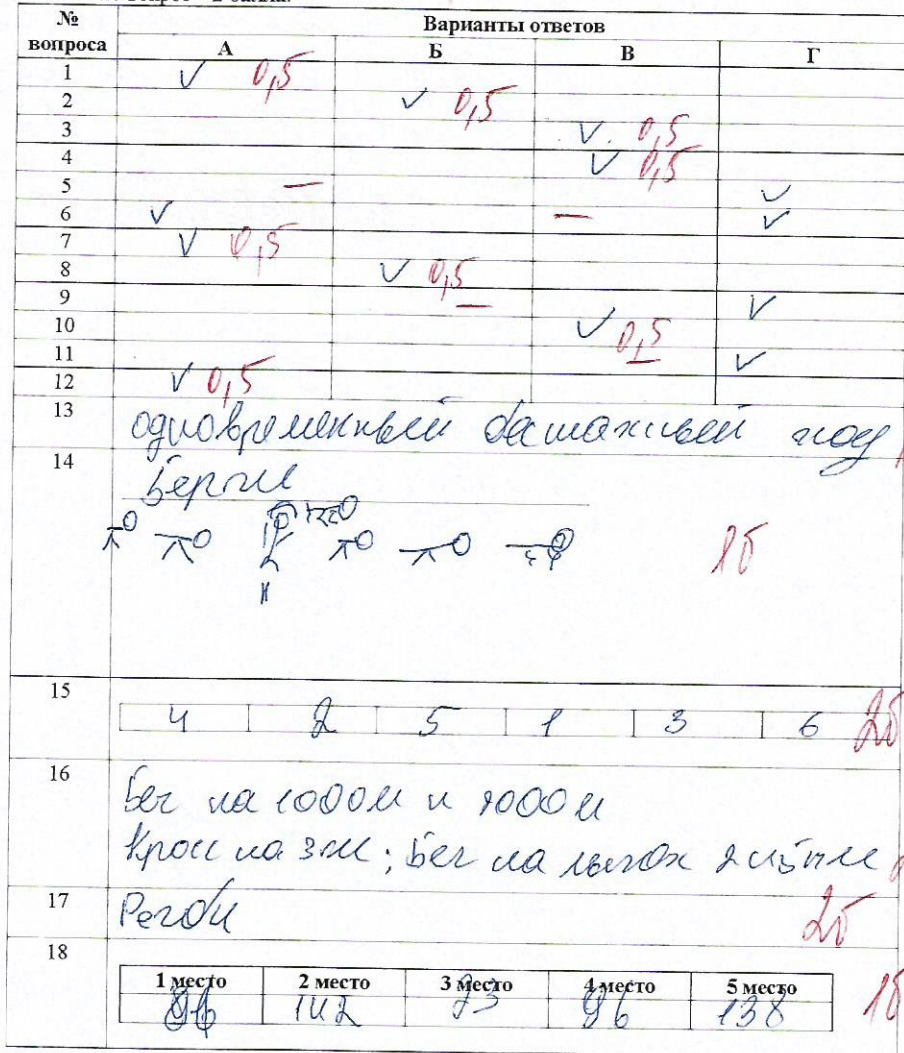 вопрос – 2 балла.
№ вопроса Варианты ответов
А Б В Г
1 ✓ 0,5
2 ✓ 0,5
3 ✓ 0,5
4 ✓ 0,5
5 — ✓
6 ✓ — ✓
7 ✓ 0,5
8 ✓ 0,5
9 — ✓
10 ✓ 0,5
11 — ✓
12 ✓ 0,5
13 одновременный ход
14
1б
15 4 2 5 1 3 6 2б
16 Бег на 1000м и
Кросс на 3км; Бег на лыжах
17 Регби 2б
18
1 место 2 место 3 место 4 место 5 место
142 73 96 138 1б